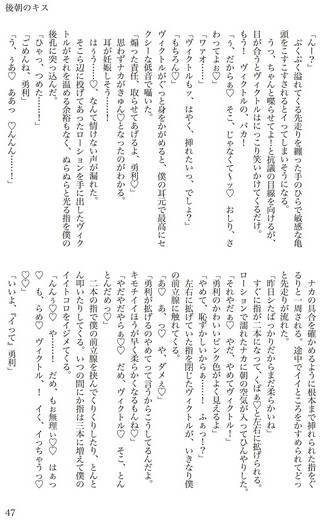 後朝のキス
「んー？」
　ぷくぷく溢れてくる先走りを纏った手のひらで敏感な亀
頭をこすこすされるとイってしまいそうになる。
　うっ、ちゃんと喋らせてよ！と抗議の目線を向けるが、
目が合うとヴィクトルはにっこり笑いかけてくるだけ。
　もう！　ヴィクトルの、バカ！
「ぅ、だからぁ♡　そこ、じゃなくてぇッ♡　おしり、さ
わってよぉ♡」
「ワァオ……」
「ヴィクトルもッ、はやく、挿れたいっ、でしょ？」
「もちろん♡」
　ヴィクトルがぐっと身をかがめると、僕の耳元で最高にセ
クシーな低音で囁いた。
「煽った責任、取らせてあげるよ、勇利♡」
　思わずナカがきゅん♡となったのがわかる。
　耳が妊娠しそう……！
「はぅぅ……♡」なんて情けない声が漏れた。
　そこら辺に投げてあったローションを手に出したヴィク
トルがそれを温める余裕もなく、ぬらぬらと光る指を僕の
後孔に突っ込んだ。
「ひゃっ、つめた……！」
「ごめんね、勇利」
「う、うぁ♡　ああっ♡んんん……！」
　ナカの具合を確かめるように根本まで挿れられた指をぐ
るりと一周される。途中でイイところをかすめられてどっ
と先走りが流れた。
「昨日シたばっかりだからまだ柔らかいね」
　すぐに指が二本になって、くぱぁ♡と左右に拡げられる。
ローションで濡れたナカに朝の空気が入ってひんやりした。
「それやだぁ♡　やだ、やめてヴィクトル！」
「勇利のかわいいピンク色がよく見えるよ」
「やめて、恥ずかしいからぁ……！　ふぁっ！？」
　左右に拡げていた指を閉じたヴィクトルが、いきなり僕
の前立腺に触れてくる。
「あ♡　あ、っ♡　や、ダメぇ♡」
「勇利が拡げるのやめてって言うからこうしてるんだよ。
キモチイイほうが早く柔らかくなるもんね♡」
「やだやだやらぁ♡♡　だめ、ヴィクトル♡　そこ、とん
とんだめっ♡」
　二本の指で僕の前立腺を挟んでくりくりしたり、とんと
ん叩いたりしてくる。いつの間にか指は三本に増えて僕の
イイトコロをイジメてくる。
「んんぅ♡♡　や……！　だめ、もぉ無理ぃ♡♡　はぁっ
♡　も、らめ♡　ヴィクトル、！　イく、イっちゃうっ♡
♡♡」
「いいよ、『イって』勇利」
47